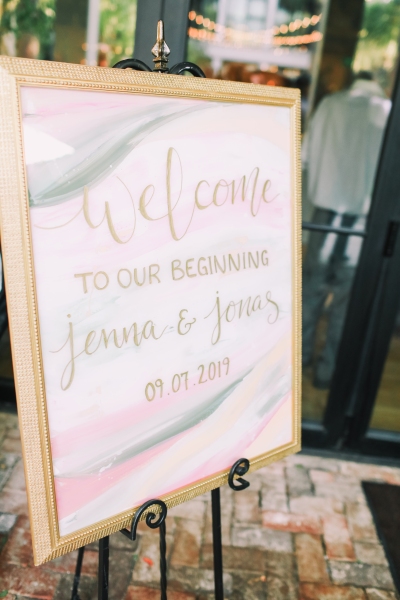 welcome
TO OUR BEGINNING
jenna & jonas
09.07.2019